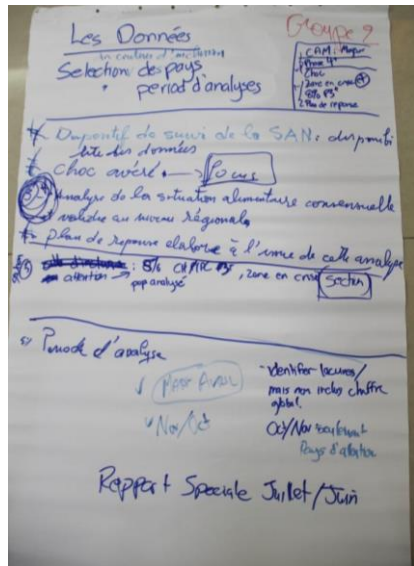 Les Données
Selection des pays
period d'analyses
Groupe 2
Choc
Plan de reponse
Dispositif de suivi de la SAN: disponibi
lité des données
Choc avéré → focus
Analyse de la situation alimentaire consensuelle
validée au niveau régional
plan de reponse elaboré à l'issue de cette analyse
attention
pop analysé
, zone en crise
Section
Periode d'analyse
Mars/Avril
Nov/Oct
identifier lacunes/
mais non inclus chiffre
global.
Oct/Nov seulement
Pays d'attention
Rapport Speciale Juillet/Juin